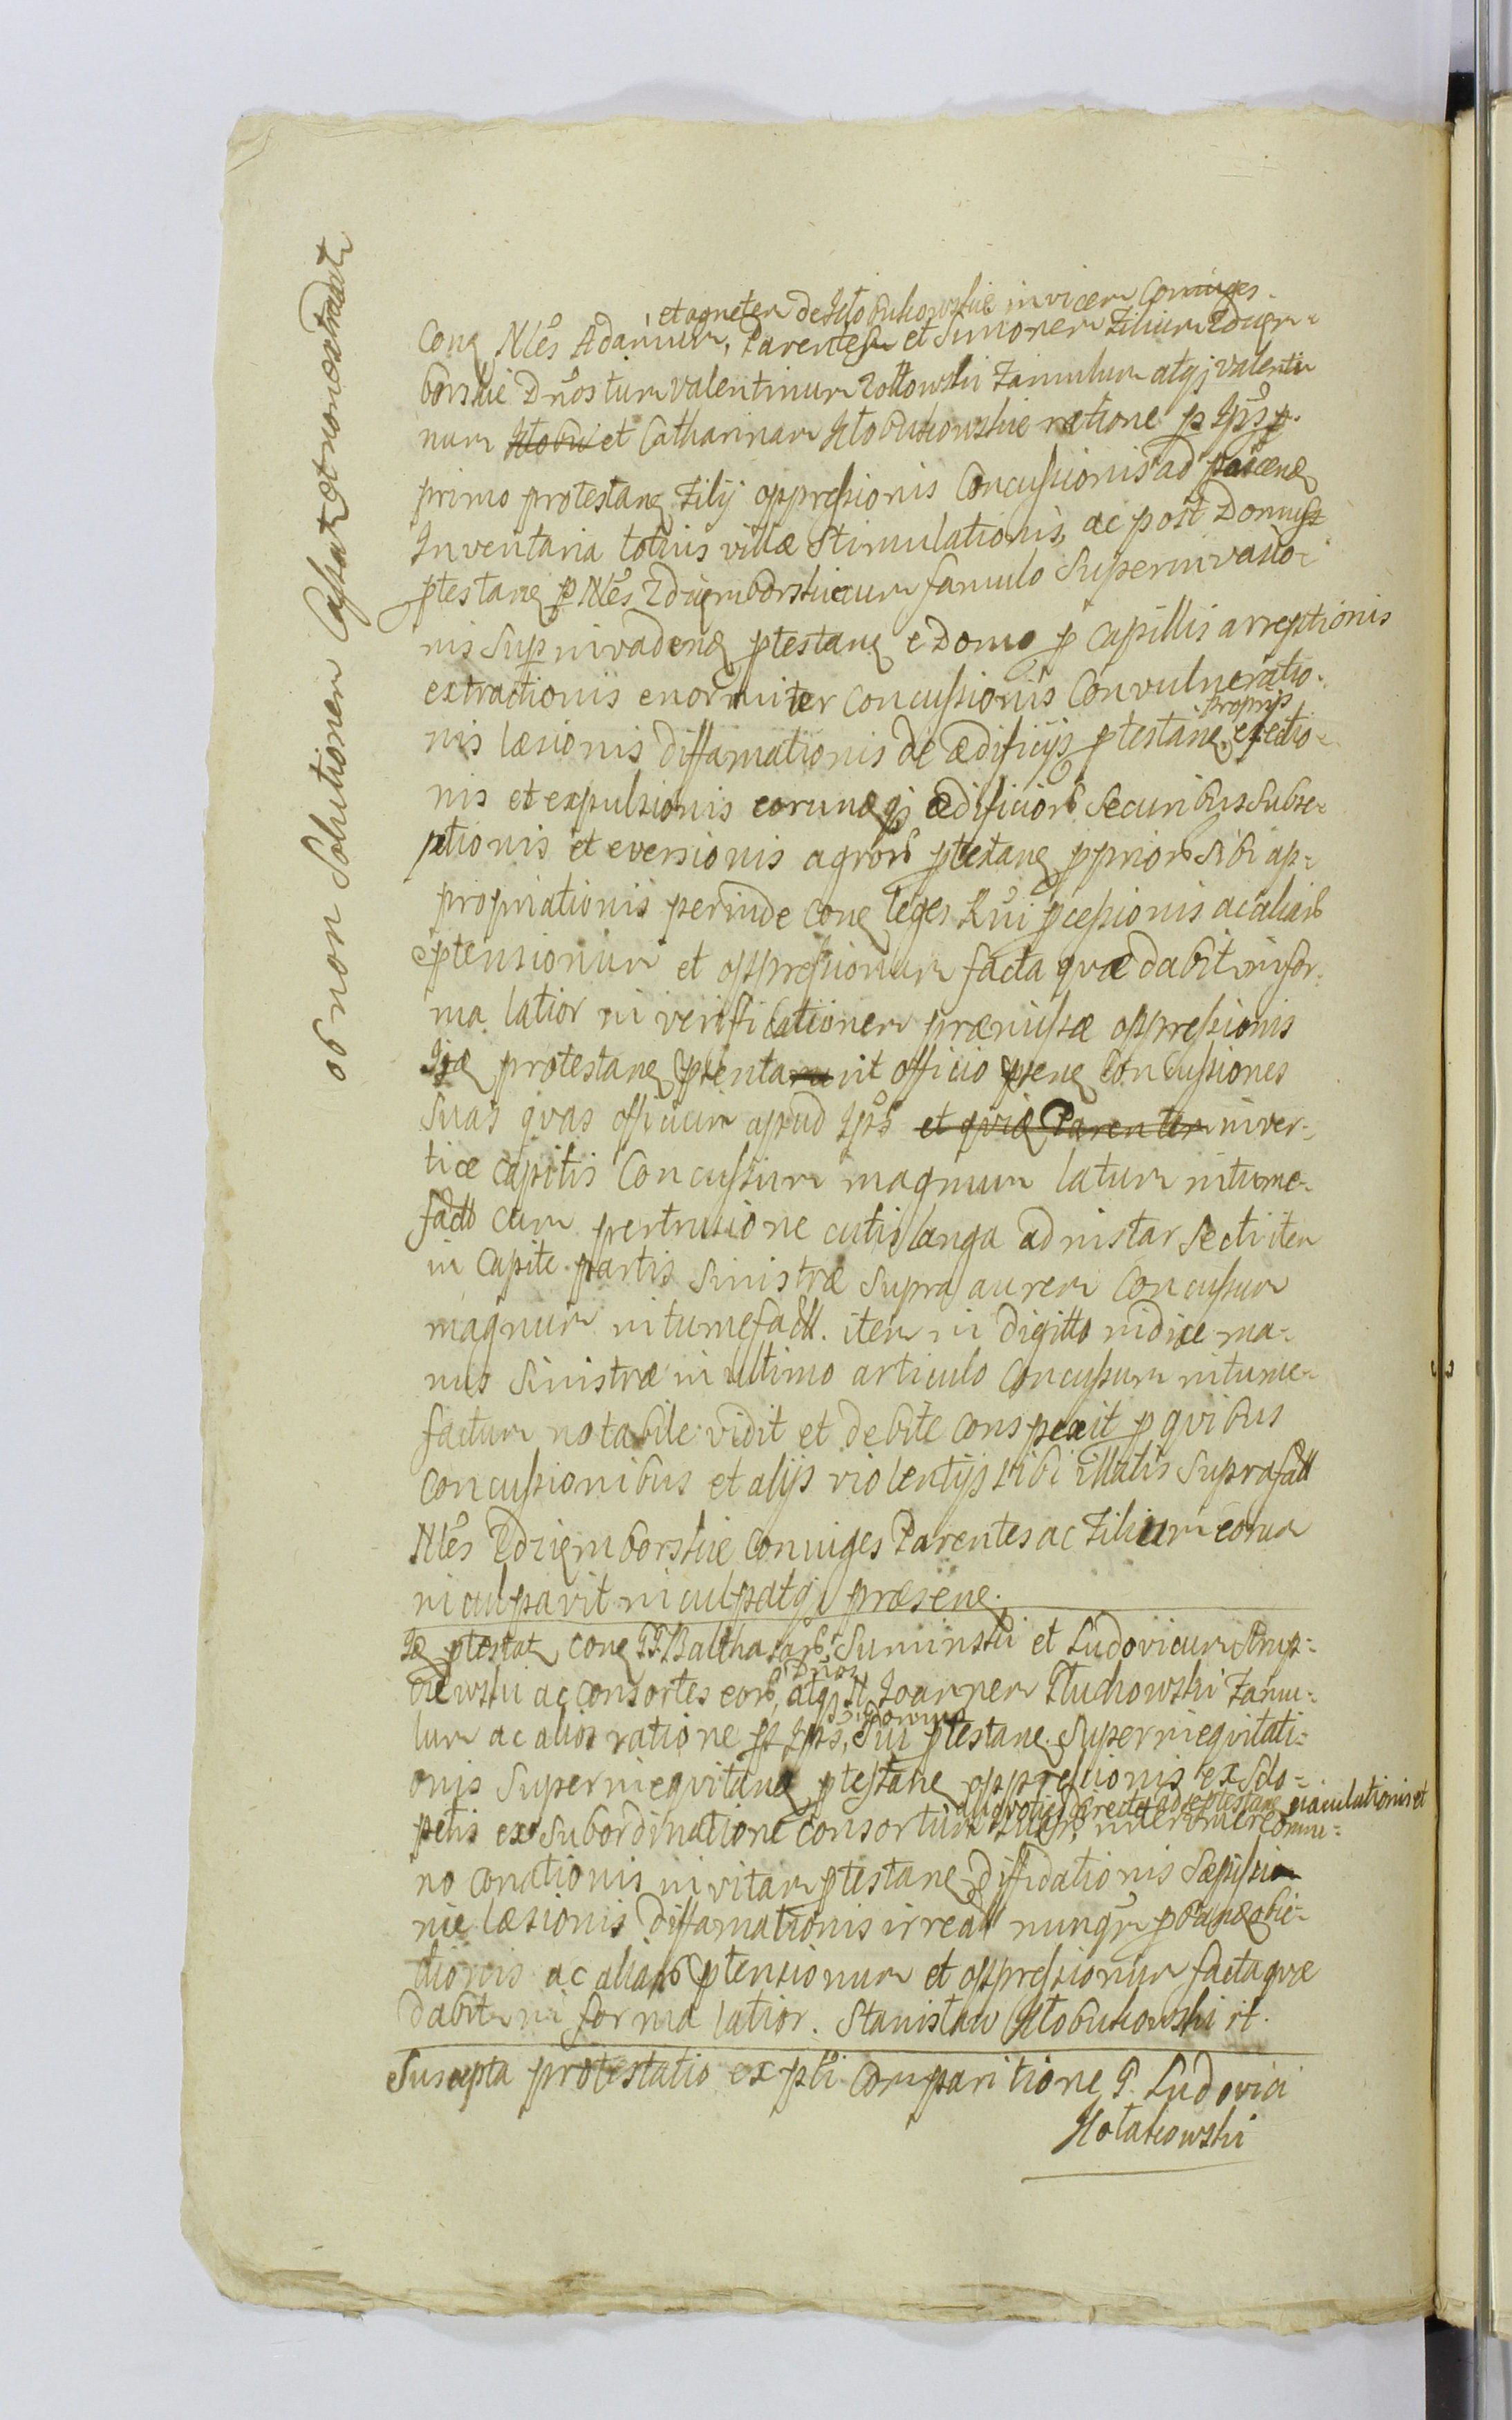 ob non Solutionem Cassat et non extradat
et agnetem de Kłobukowskie invicem Coniuges
Con Nles Adamum, Parentes et Simonem Filium Zdziem=
borskie Dnos tum Valentinum Zołtowski Famulum atq Valenti
num Kłobu et Catharinam Kłobukowskie ratione p Ipsos p
primo protestan Filij oppressionis Concussionis ad pascen
Inventaria totius villæ Stimulationis, ac post Domus
ptestan p Nles Zdziemborskie cum famulo Superinvasio=
nis Superinvaden ptestan e Domo p Capillis arreptionis
extractionis enormiter concussionis Convulneratio=
nis læsionis diffamationis de ædificijs ptestan proprijs ejectio=
nis et expulsionis eorundq ædificiorb Securibus Subse=
ctionis et eversionis agrorb ptestan ppriorb Sibi ap=
propriationis perinde con leges Rni pcessionis ac aliarb
ptensionum et oppressionum facta quæ dabit in for=
ma latior in verificationem præmissæ oppressionis
Ijdæ protestan psentavit officio psen Concussiones
Suas quas officium apud Ipsos et quidæ Parentem in ver=
tice capitis Concussum magnum latum intume=
factt cum pertrusione cutis longa ad instar Secti item
in Capite partis Sinistræ Supra aurem Concussum
magnum intumefactt. item in digitto indice ma=
nus Sinistræ in ultimo articulo Concussum intume=
factum notabile vidit et debite conspexit p quibus
Concussionibus et alijs violentijs sibi illatis Suprafatt
Nles Zdziemborskie Coniuges Parentes ac Filium eorum
inculpavit inculpatq præsen.
Id ptestat con GG Balthasarb Suminski et Ludovicum Strup=
czewski ac consortes eorb, Dnos atq N Joannem Tłuchowski Famu=
lum ac alios ratione p Ipsos, Domum Sui ptestan Superinequitati=
onis Superinequitan ptestan oppressionis ex Sclo=
petis ex Subordinatione Consortum Suarb, aliquoties directe ad ptestan eiaculationis et interimere omni=
no conationis in vitam ptestan diffidationis Sæpissi
me læsionis diffamationis irreatt nunqm pband obie=
ctionis ac aliarb ptensionum et oppressionum facta quæ
dabit in forma latior. Stanisław Kłobukowski rt.
Suscepta protestatio ex psti Comparitione G. Ludovici
Kołakowski